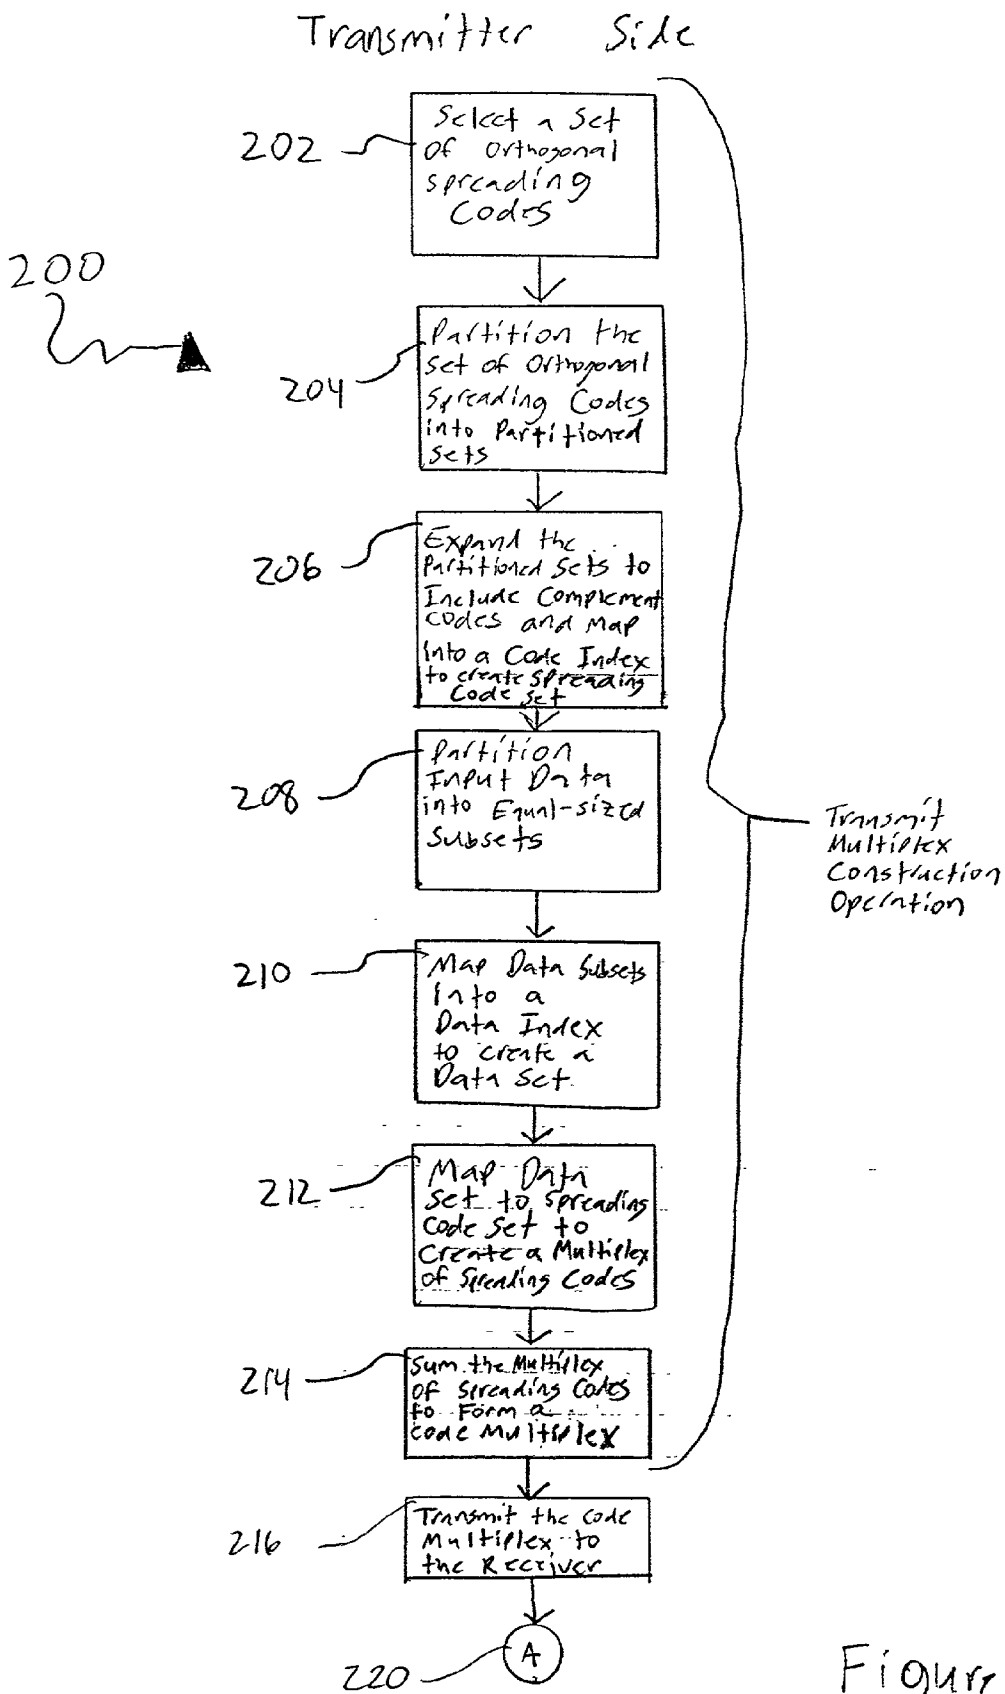 Transmitter Side
202
Select a Set
of Orthogonal
Spreading
Codes
200
204
Partition the
Set of Orthogonal
Spreading Codes
into Partitioned
Sets
206
Expand the
Partitioned Sets to
Include Complement
Codes and Map
into a Code Index
to create Spreading
Code Set
208
Partition
Input Data
into Equal-sized
Subsets
Transmit
Multiplex
Construction
Operation
210
Map Data Subsets
Into a
Data Index
to create a
Data Set
212
Map Data
Set to Spreading
Code Set to
Create a Multiplex
of Spreading Codes
214
Sum the Multiplex
of Spreading Codes
to Form a
Code Multiplex
216
Transmit the Code
Multiplex to
the Receiver
220
A
Figure